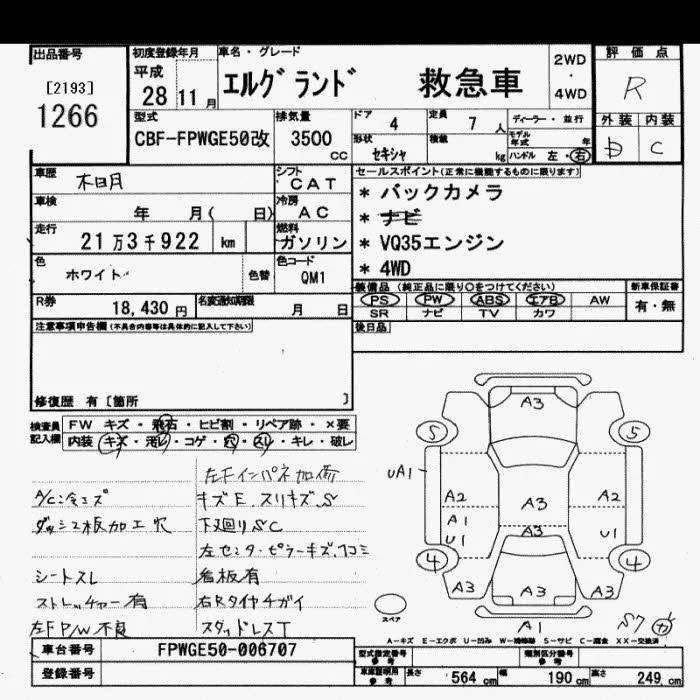 出品番号
[2193]
1266
初度登録年月
平成
28 11 月
車名・グレード
エルグランド 救急車
2WD
・
4WD
評価点
R
外装 内装
D C
型式
CBF-FPWGE50改
排気量
3500
cc
ドア 4
定員 7 人
形状
セキシャ
積載
kg
ディーラー・並行
モデル年式 年
ハンドル 左・右
車歴
シフト
CAT
車検
年 月( 日)
冷房
AC
走行
21 万 3 千 922 km
燃料
ガソリン
色
ホワイト
色替
色コード
QM1
R券
18,430 円
名変通知期限
月 日
セールスポイント(正常に機能するものに限ります)
* バックカメラ
* ナビ
* VQ35エンジン
* 4WD
装備品 (純正品に限り○をつけてください)
PS PW ABS エアB AW
SR ナビ TV カワ
新車保証書
有・無
後日品
注意事項申告欄(不具合内容等は具体的に記入して下さい)
修復歴 有 [箇所 ]
検査員
記入欄
FW キズ・飛石・ヒビ割・リペア跡・×要
内装 キズ・汚レ・コゲ・穴・スレ・キレ・破レ
左Fインパネ加飾
A/C冷エズ
キズE.スリキズS
ダッシュ板加工穴
下廻りSC
左センターピラーキズ.凹コミ
シートスレ
看板有
ストレッチャー有
右Rタイヤチガイ
左F P/W不良
スタッドレスT
A3
5
5
UA1
A2
A1
U1
A3
A2
U1
A3
4
4
A3
A3
A3
スペア
A1
S7
A-キズ E-エクボ U-凹み W-補修跡 S-サビ C-腐食 XX-交換済
車台番号
FPWGE50-006707
登録番号
型式指定番号
参考
類別区分番号
参考
車庫証明用
参考
長さ 564 cm
幅 190 cm
高さ 249 cm